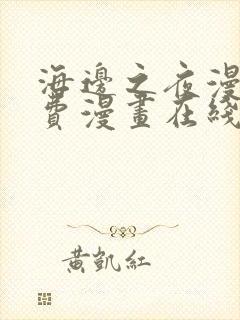 海邊之夜漫
費漫畫在綫
黃凱紅